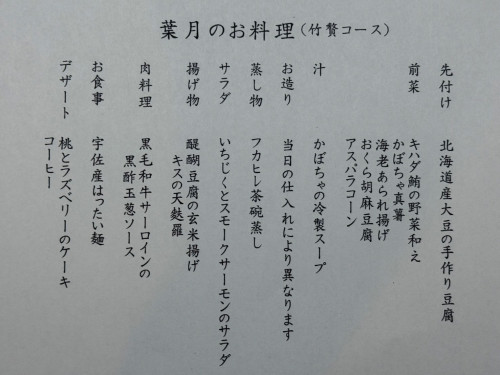 葉月のお料理(竹贅コース)
先付け 北海道産大豆の手作り豆腐
前菜 キハダ鮪の野菜和え
かぼちゃ真薯
海老あられ揚げ
おくら胡麻豆腐
アスパラコーン
汁 かぼちゃの冷製スープ
お造り 当日の仕入れにより異なります
蒸し物 フカヒレ茶碗蒸し
サラダ いちじくとスモークサーモンのサラダ
揚げ物 醍醐豆腐の玄米揚げ
キスの天麩羅
肉料理 黒毛和牛サーロインの
黒酢玉葱ソース
お食事 宇佐産はったい麺
デザート 桃とラズベリーのケーキ
コーヒー